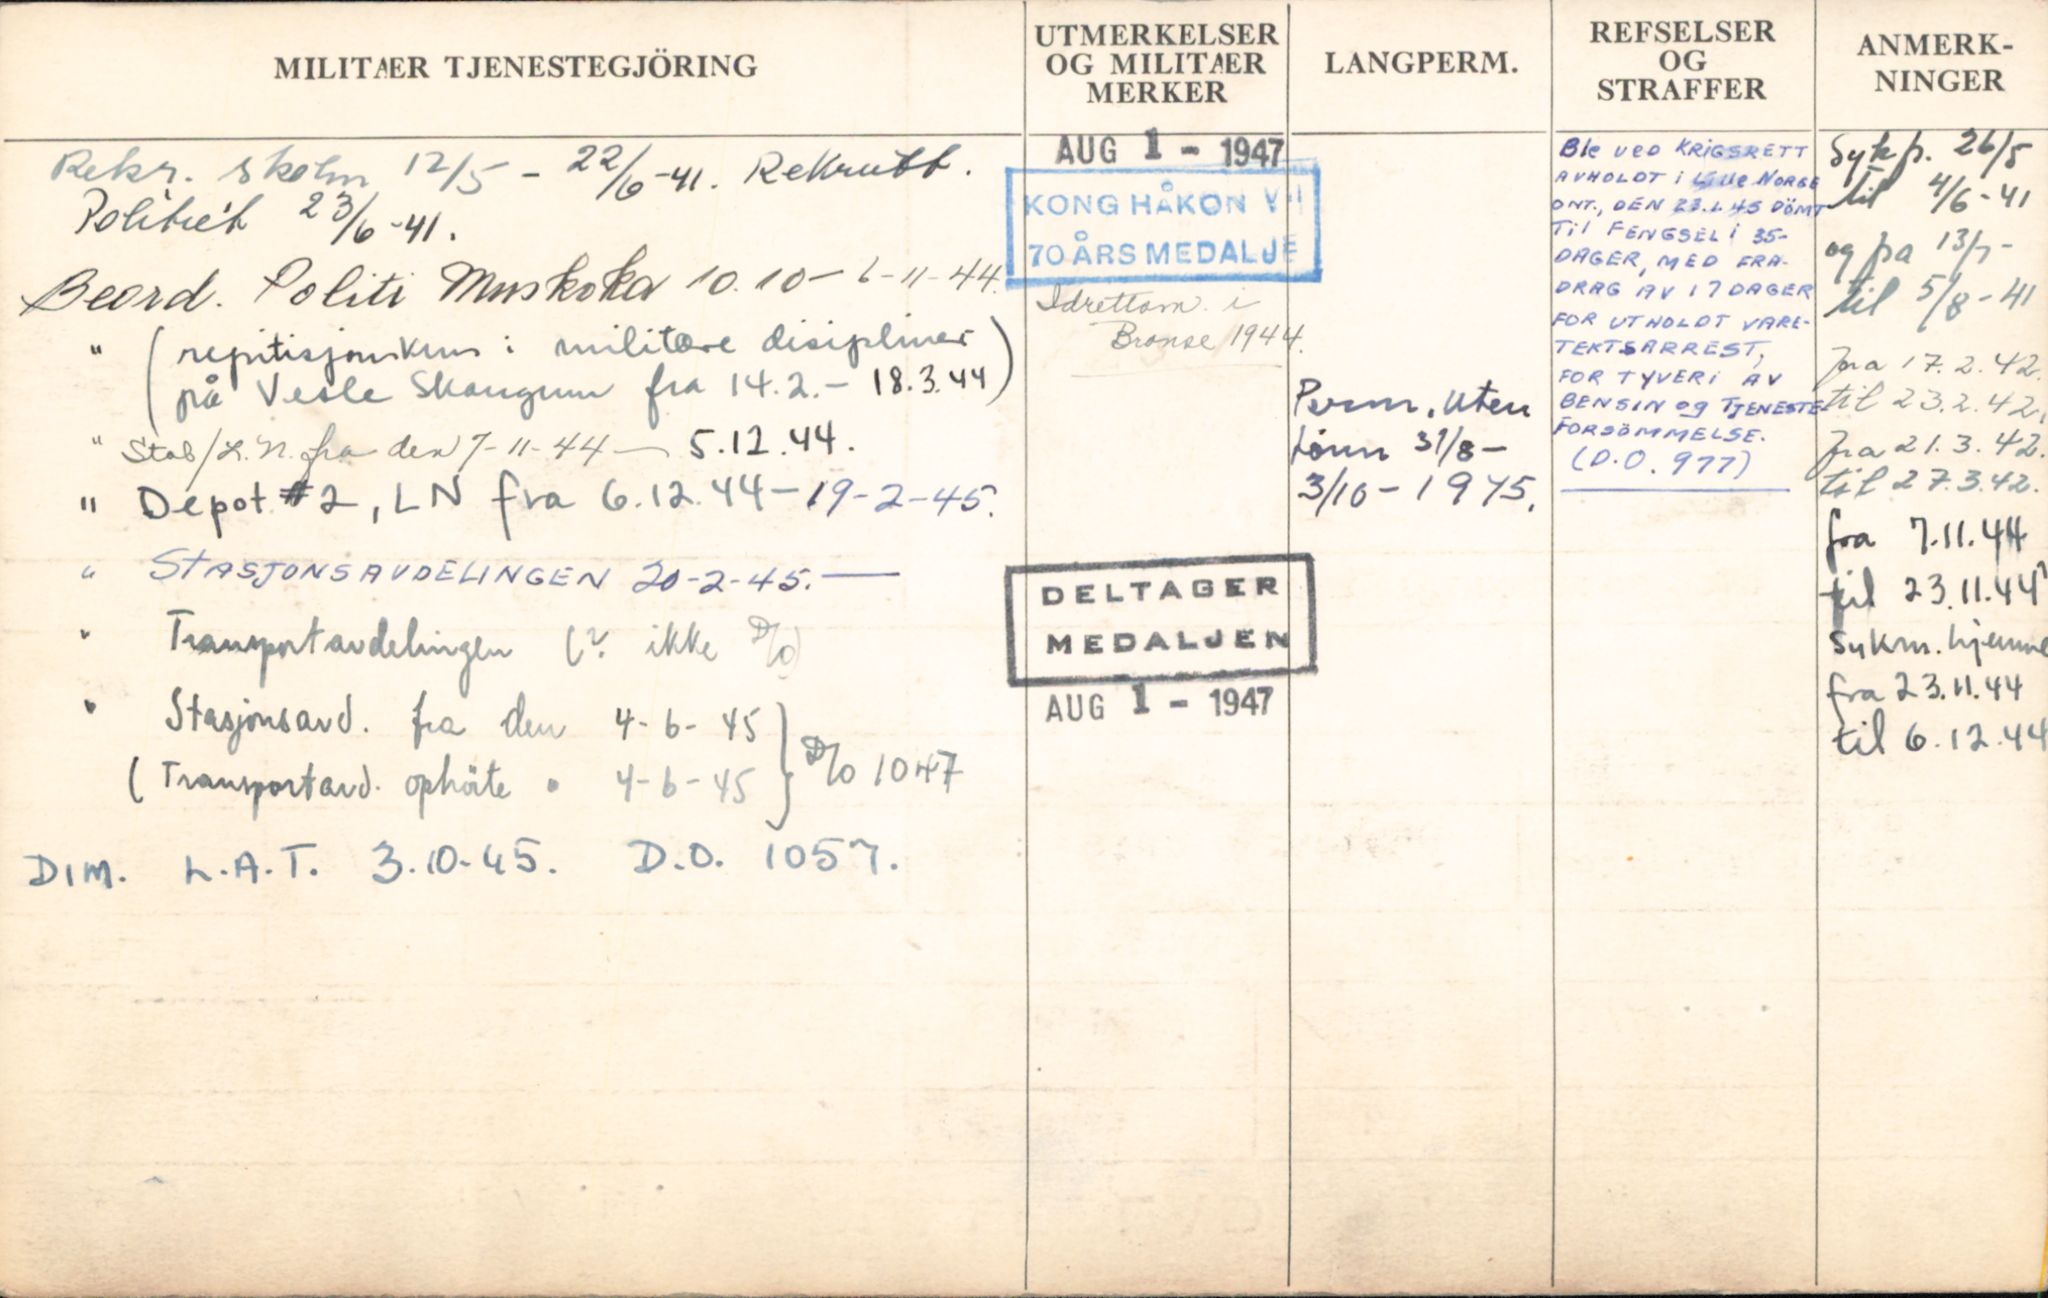 MILITÆR TJENESTEGJÖRING
Rekr. skolen 12/5 - 22/6-41. Rekrutt.
Politiet 23/6-41.
Beord. Politi Muskoka 10.10 - 6-11-44.
" (repitisjonskurs i militære disipliner
på Vesle Skaugum fra 14.2. - 18.3.44)
" Stab/L.N. fra den 7-11-44 — 5.12.44.
" Depot #2, LN fra 6.12.44 - 19-2-45.
" STASJONSAVDELINGEN 20-2-45. —
" Transportavdelingen (? ikke D/O)
" Stasjonsavd. fra den 4-6-45
(Transportavd. ophörte " 4-6-45 } D/O 1047
DIM. L.A.T. 3.10-45. D.O. 1057.
UTMERKELSER
OG MILITÆR
MERKER
AUG 1 - 1947
KONG HÅKON VII
70 ÅRS MEDALJE
Idrettsm. i
Bronse 1944.
DELTAGER
MEDALJEN
AUG 1 - 1947
LANGPERM.
Perm. uten
lønn 31/8 -
3/10 - 1945.
REFSELSER
OG
STRAFFER
BLE VED KRIGSRETT
AVHOLDT I LITLE NORGE
ONT., DEN 23.1.45 DÖMT
TIL FENGSEL I 35-
DAGER, MED FRA-
DRAG AV 17 DAGER
FOR UTHOLDT VARE-
TEKTSARREST,
FOR TYVERI AV
BENSIN OG TJENESTE
FORSÖMMELSE.
(D.O. 977)
ANMERK-
NINGER
Sykp. 26/5
til 4/6-41
og fra 13/7-
til 5/8-41
fra 17.2.42.
til 23.2.42.
fra 21.3.42.
til 27.3.42.
fra 7.11.44
til 23.11.44
Sykm. hjemme
fra 23.11.44
til 6.12.44